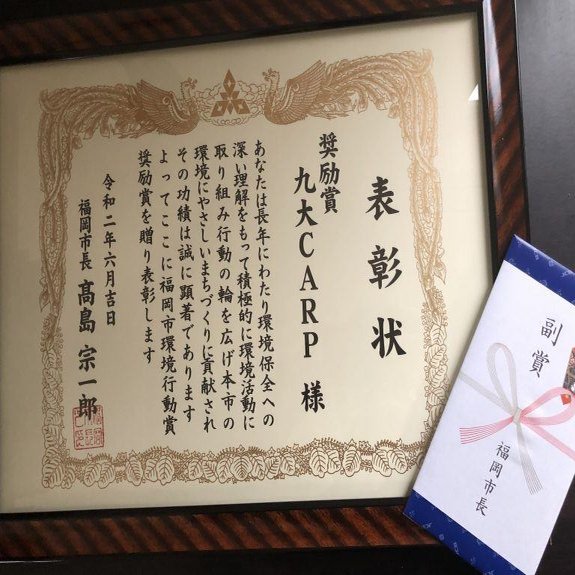 表彰状
奨励賞
九大CARP 様
あなたは長年にわたり環境保全への
深い理解をもって積極的に環境活動に
取り組み行動の輪を広げ本市の
環境にやさしいまちづくりに貢献され
その功績は誠に顕著であります
よってここに福岡市環境行動賞
奨励賞を贈り表彰します
令和二年六月吉日
福岡市長 髙島 宗一郎
副賞
福岡市長